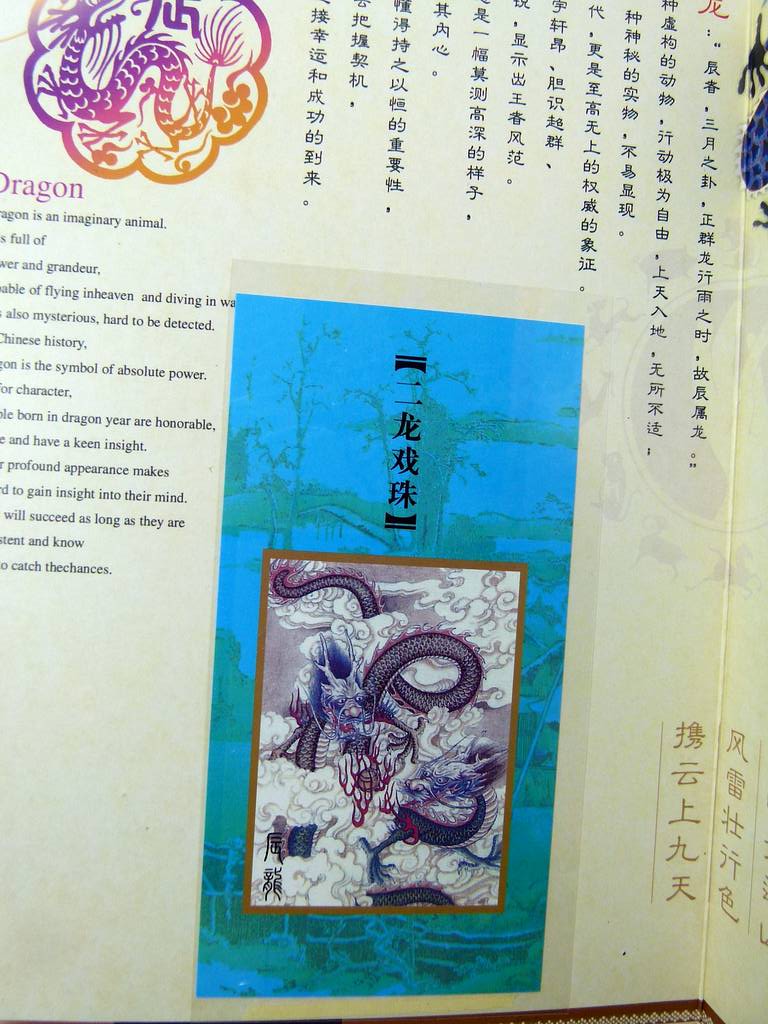 龙：“辰者，三月之卦，正群龙行雨之时，故辰属龙。”
种虚构的动物，行动极为自由，上天入地，无所不适，
种神秘的实物，不易显现。
代，更是至高无上的权威的象征。
宇轩昂、胆识超群、
显示出王者风范。
是一幅莫测高深的样子，
其内心。
懂得持之以恒的重要性，
会把握契机，
接幸运和成功的到来。
Dragon
ragon is an imaginary animal.
s full of
wer and grandeur,
able of flying inheaven and diving in wa
s also mysterious, hard to be detected.
Chinese history,
gon is the symbol of absolute power.
for character,
ple born in dragon year are honorable,
e and have a keen insight.
r profound appearance makes
rd to gain insight into their mind.
will succeed as long as they are
stent and know
to catch thechances.
【二龙戏珠】
辰龍
风雷壮行色
携云上九天